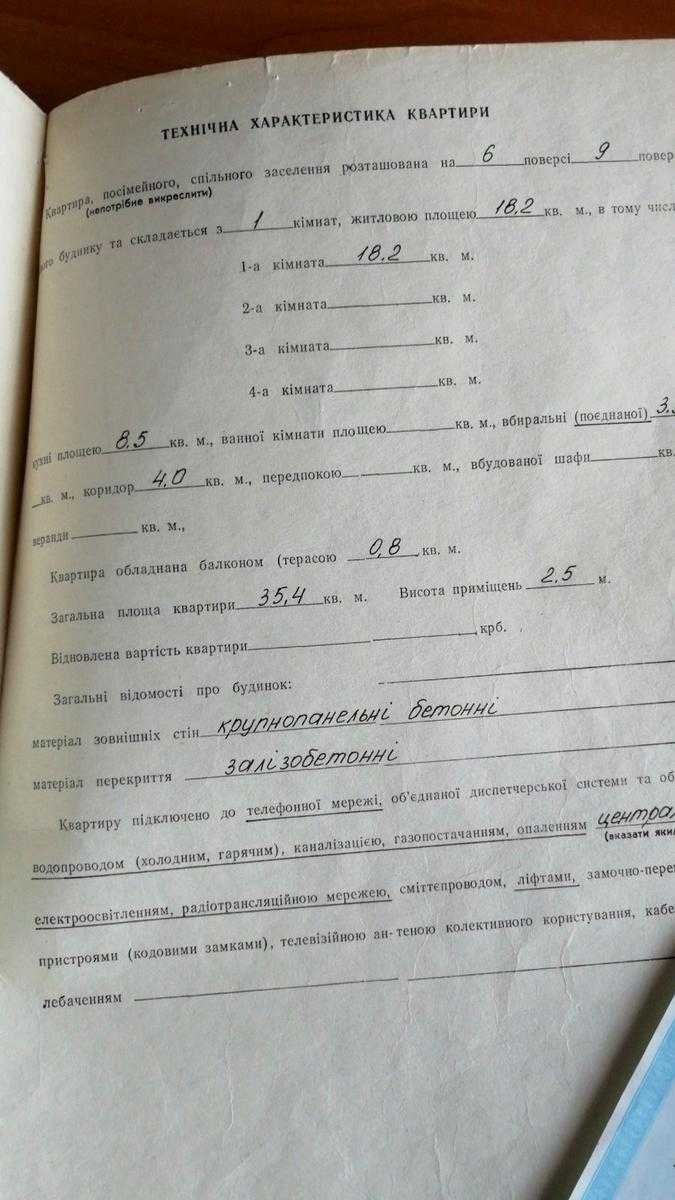 ТЕХНІЧНА ХАРАКТЕРИСТИКА КВАРТИРИ
Квартира, посімейного, спільного заселення розташована на 6 поверсі 9 повер
(непотрібне викреслити)
ого будинку та складається з 1 кімнат, житловою площею 18.2 кв. м., в тому числ
1-а кімната 18.2 кв. м.
2-а кімната кв. м.
3-а кімната кв. м.
4-а кімната кв. м.
кухні площею 8.5 кв. м., ванної кімнати площею кв. м., вбиральні (поєднаної) 3.
кв. м., коридор 4,0 кв. м., передпокою кв. м., вбудованої шафи кв.
веранди кв. м.,
Квартира обладнана балконом (терасою 0,8 кв. м.
Загальна площа квартири 35,4 кв. м. Висота приміщень 2.5 м.
Відновлена вартість квартири крб.
Загальні відомості про будинок:
матеріал зовнішніх стін крупнопанельні бетонні
матеріал перекриття залізобетонні
Квартиру підключено до телефонної мережі, об'єднаної диспетчерської системи та об
водопроводом (холодним, гарячим), каналізацією, газопостачанням, опаленням централ
(вказати яки
електроосвітленням, радіотрансляційною мережею, сміттєпроводом, ліфтами, замочно-пере
пристроями (кодовими замками), телевізійною ан-теною колективного користування, кабе
лебаченням